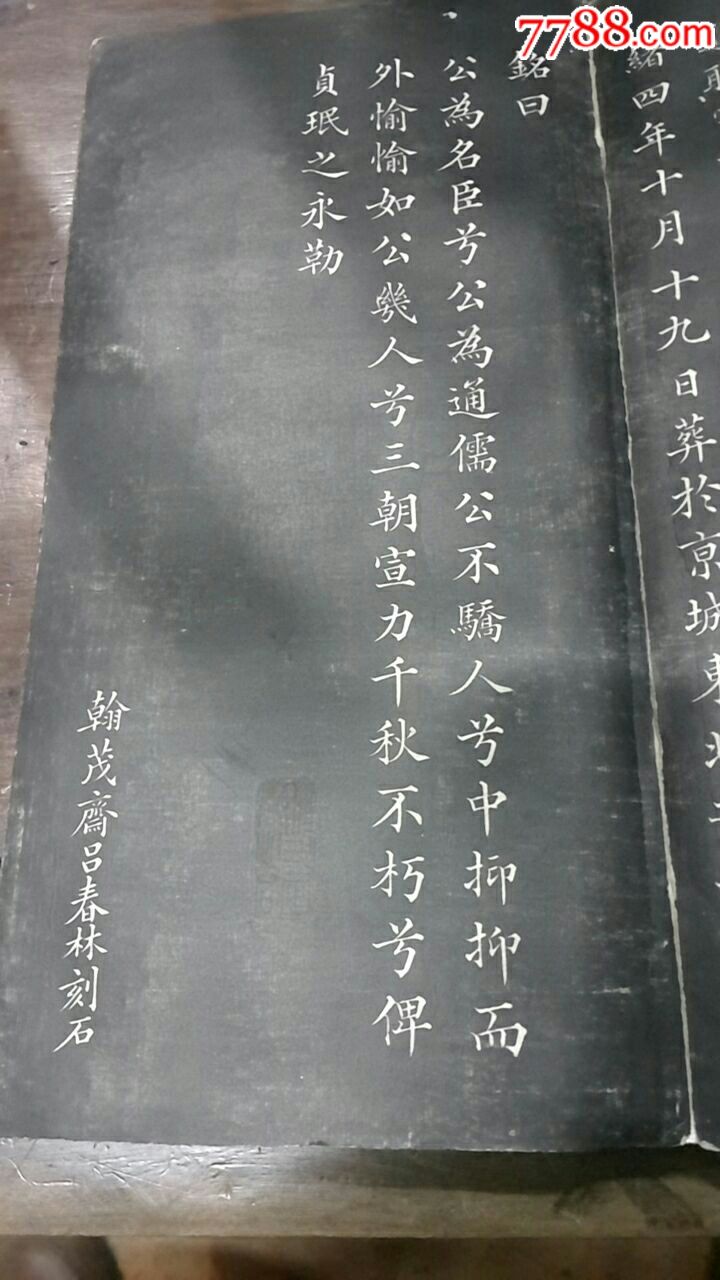 7788.com
緒四年十月十九日葬於京城東北
銘曰
公為名臣兮公為通儒公不驕人兮中抑抑而
外愉愉如公幾人兮三朝宣力千秋不朽兮俾
貞珉之永勒
翰茂齋呂春林刻石